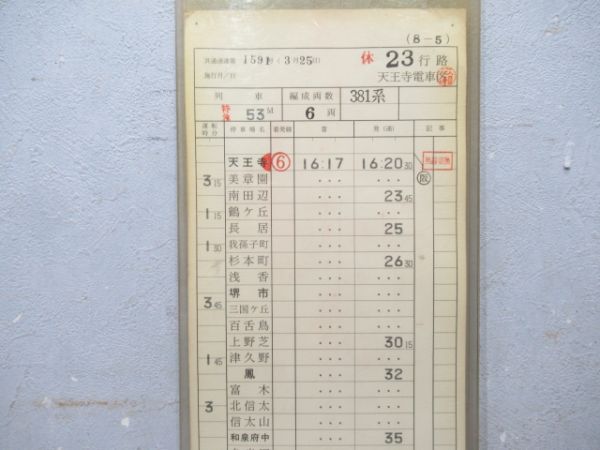 (8-5)
1591 3月25日
休 23 行路
施行月/日
天王寺電車区
列車 編成両数 381系
特後 53M 6両
運転時分 停車場名 着発線 着 発(通) 記事
天王寺 ⑥ 16:17 16:20 30
阪
3 15 美章園 ... ...
南田辺 ... 23 45
1 15 鶴ケ丘 ... ...
長居 ... 25
1 30 我孫子町 ... ...
杉本町 ... 26 30
浅香 ... ...
堺市 ... ...
3 45 三国ケ丘 ... ...
百舌鳥 ... ...
上野芝 ... 30 15
1 45 津久野 ... ...
鳳 ... 32
富木 ... ...
3 北信太 ... ...
信太山 ... ...
和泉府中 ... 35